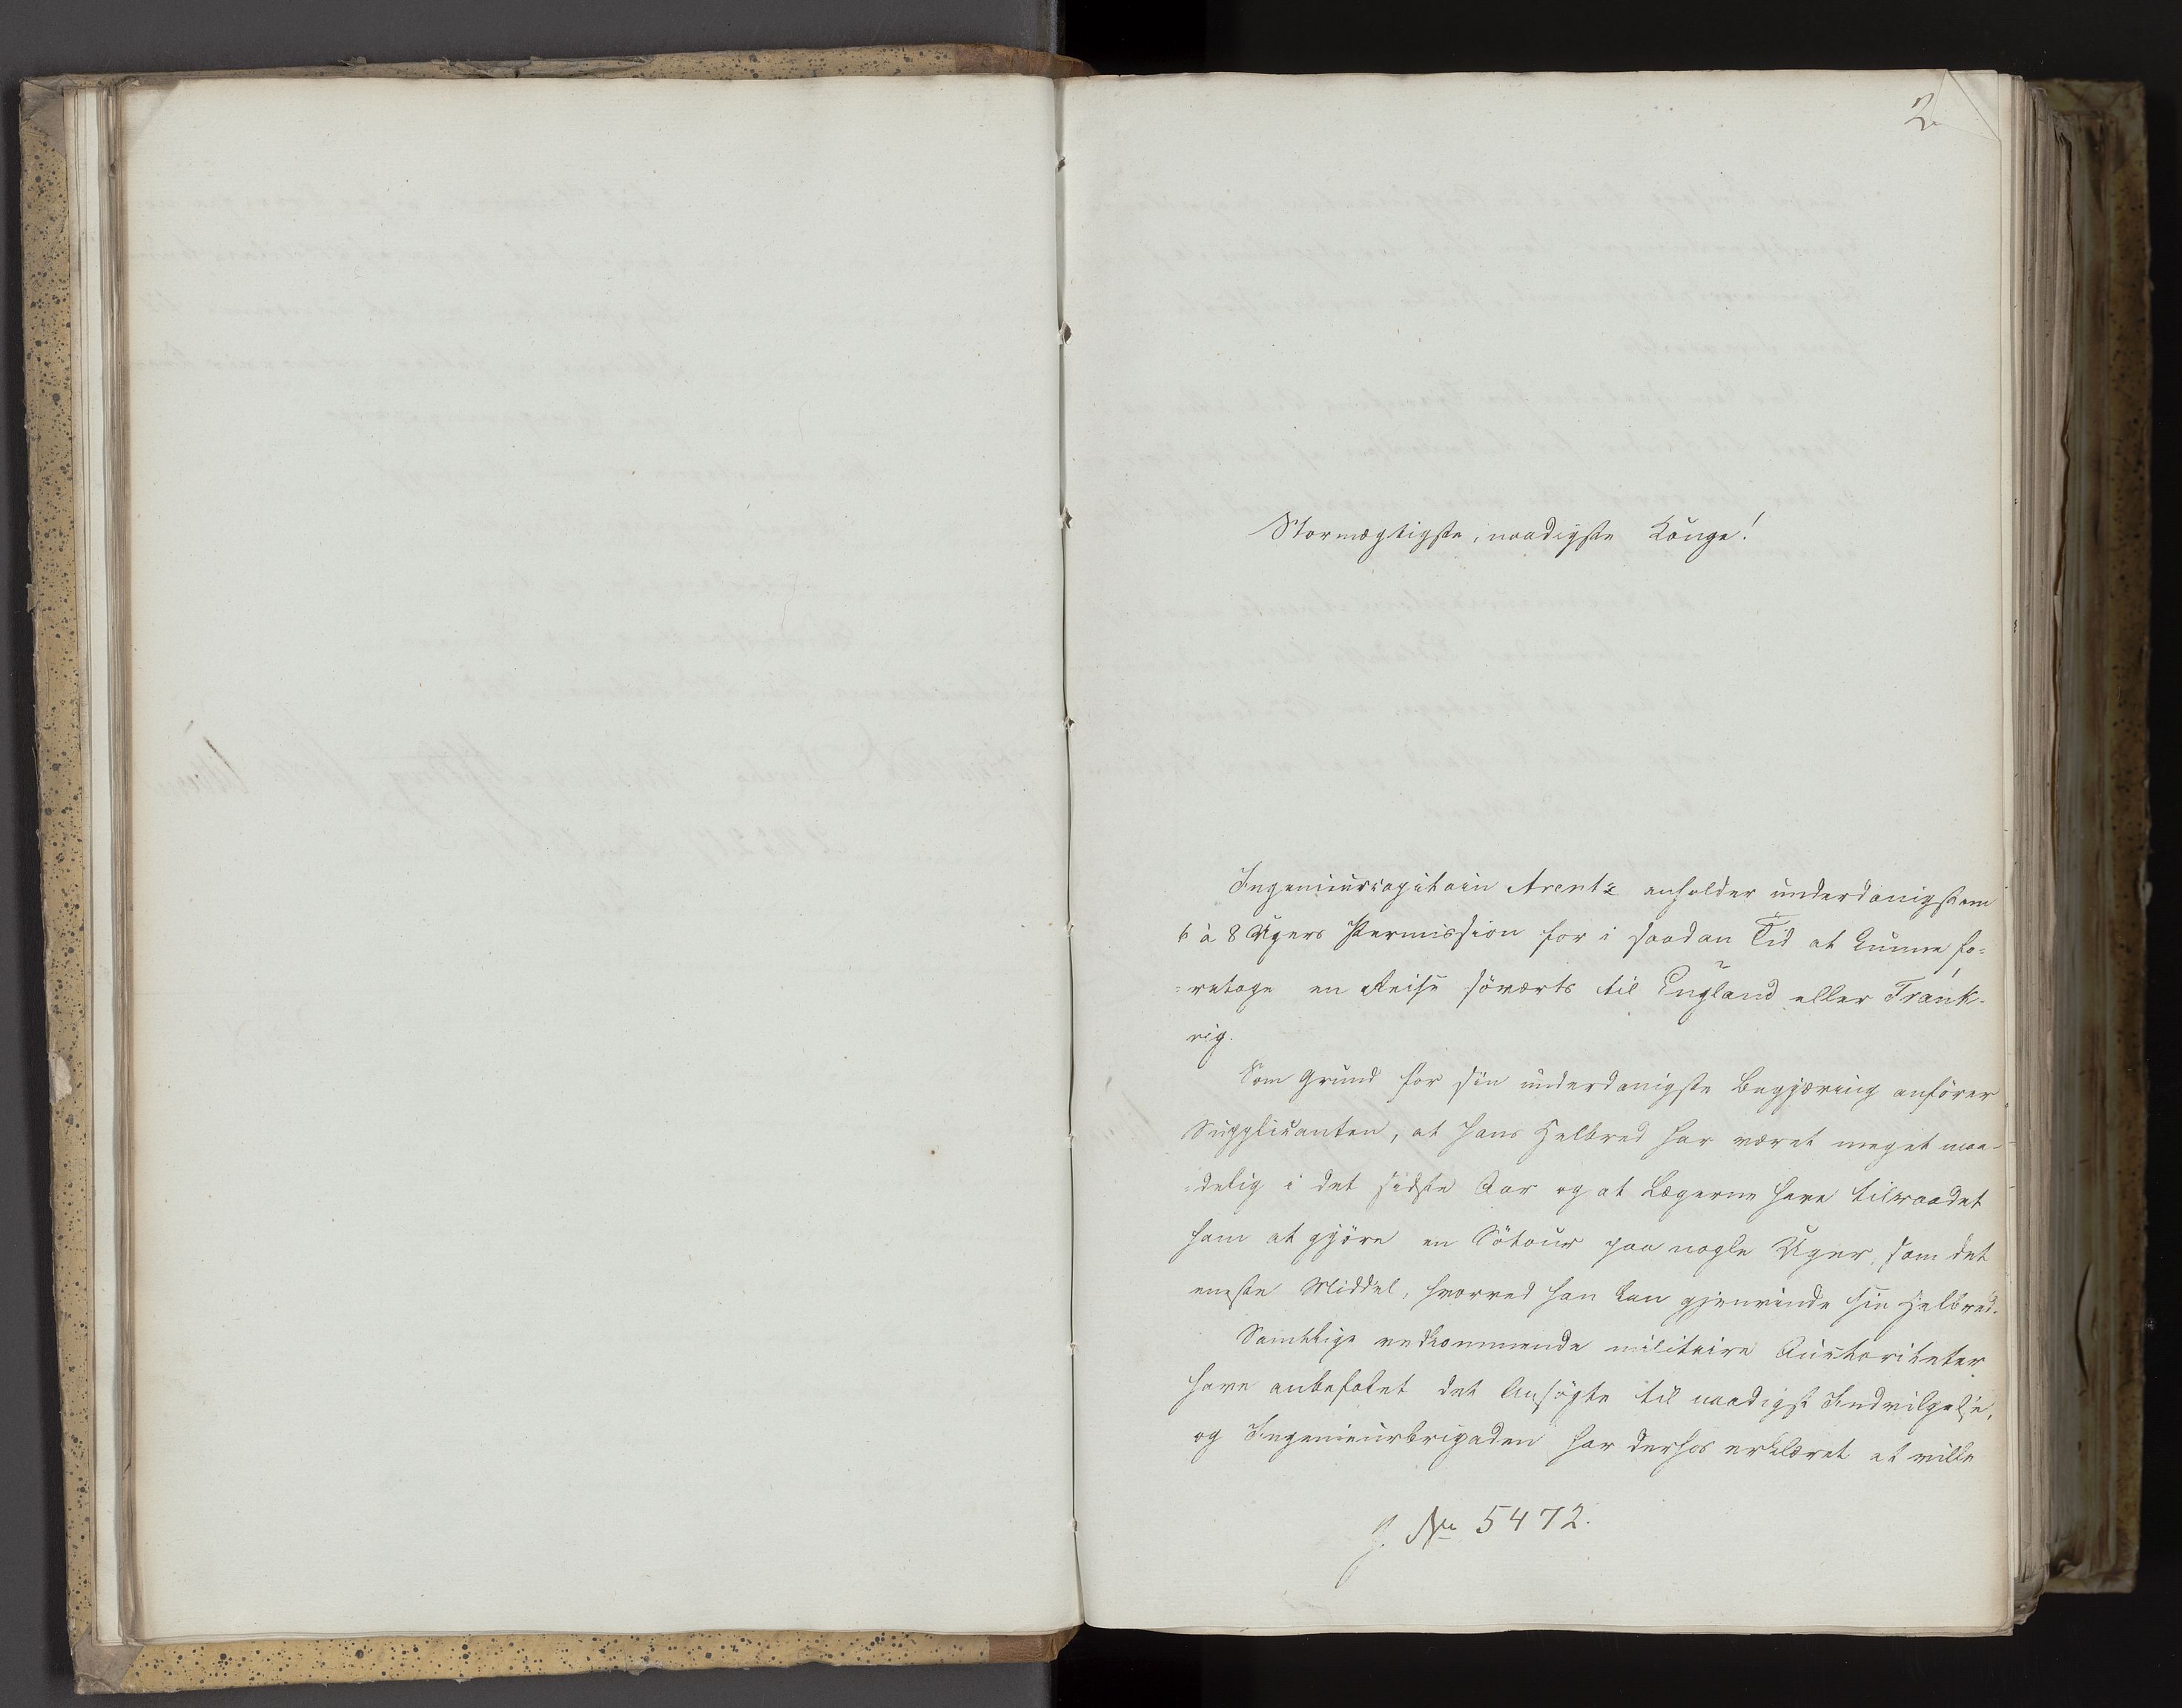 2
Stormægtigste, naadigste Konge!
Ingenieurcapitain Arentz anholder underdanigst om
6 à 8 Ugers Permission for i saadan Tid at kunne fo=
=retage en Reise söværts til England eller Frank-
rig.
Som Grund for sin underdanigste Begjæring anförer
Supplicanten, at hans Helbred har været meget maa-
delig i det sidste Aar og at Lægerne have tilraadet
ham at gjöre en Sötour paa nogle Uger, som det
eneste Middel, hvorved han kan gjenvinde sin Helbred.
Samtlige vedkommende militaire Auctoriteter
have anbefalet det Ansögte til naadigst Indvilgelse,
og Ingenieurbrigaden har derhos erklæret at ville
J. No 5472.